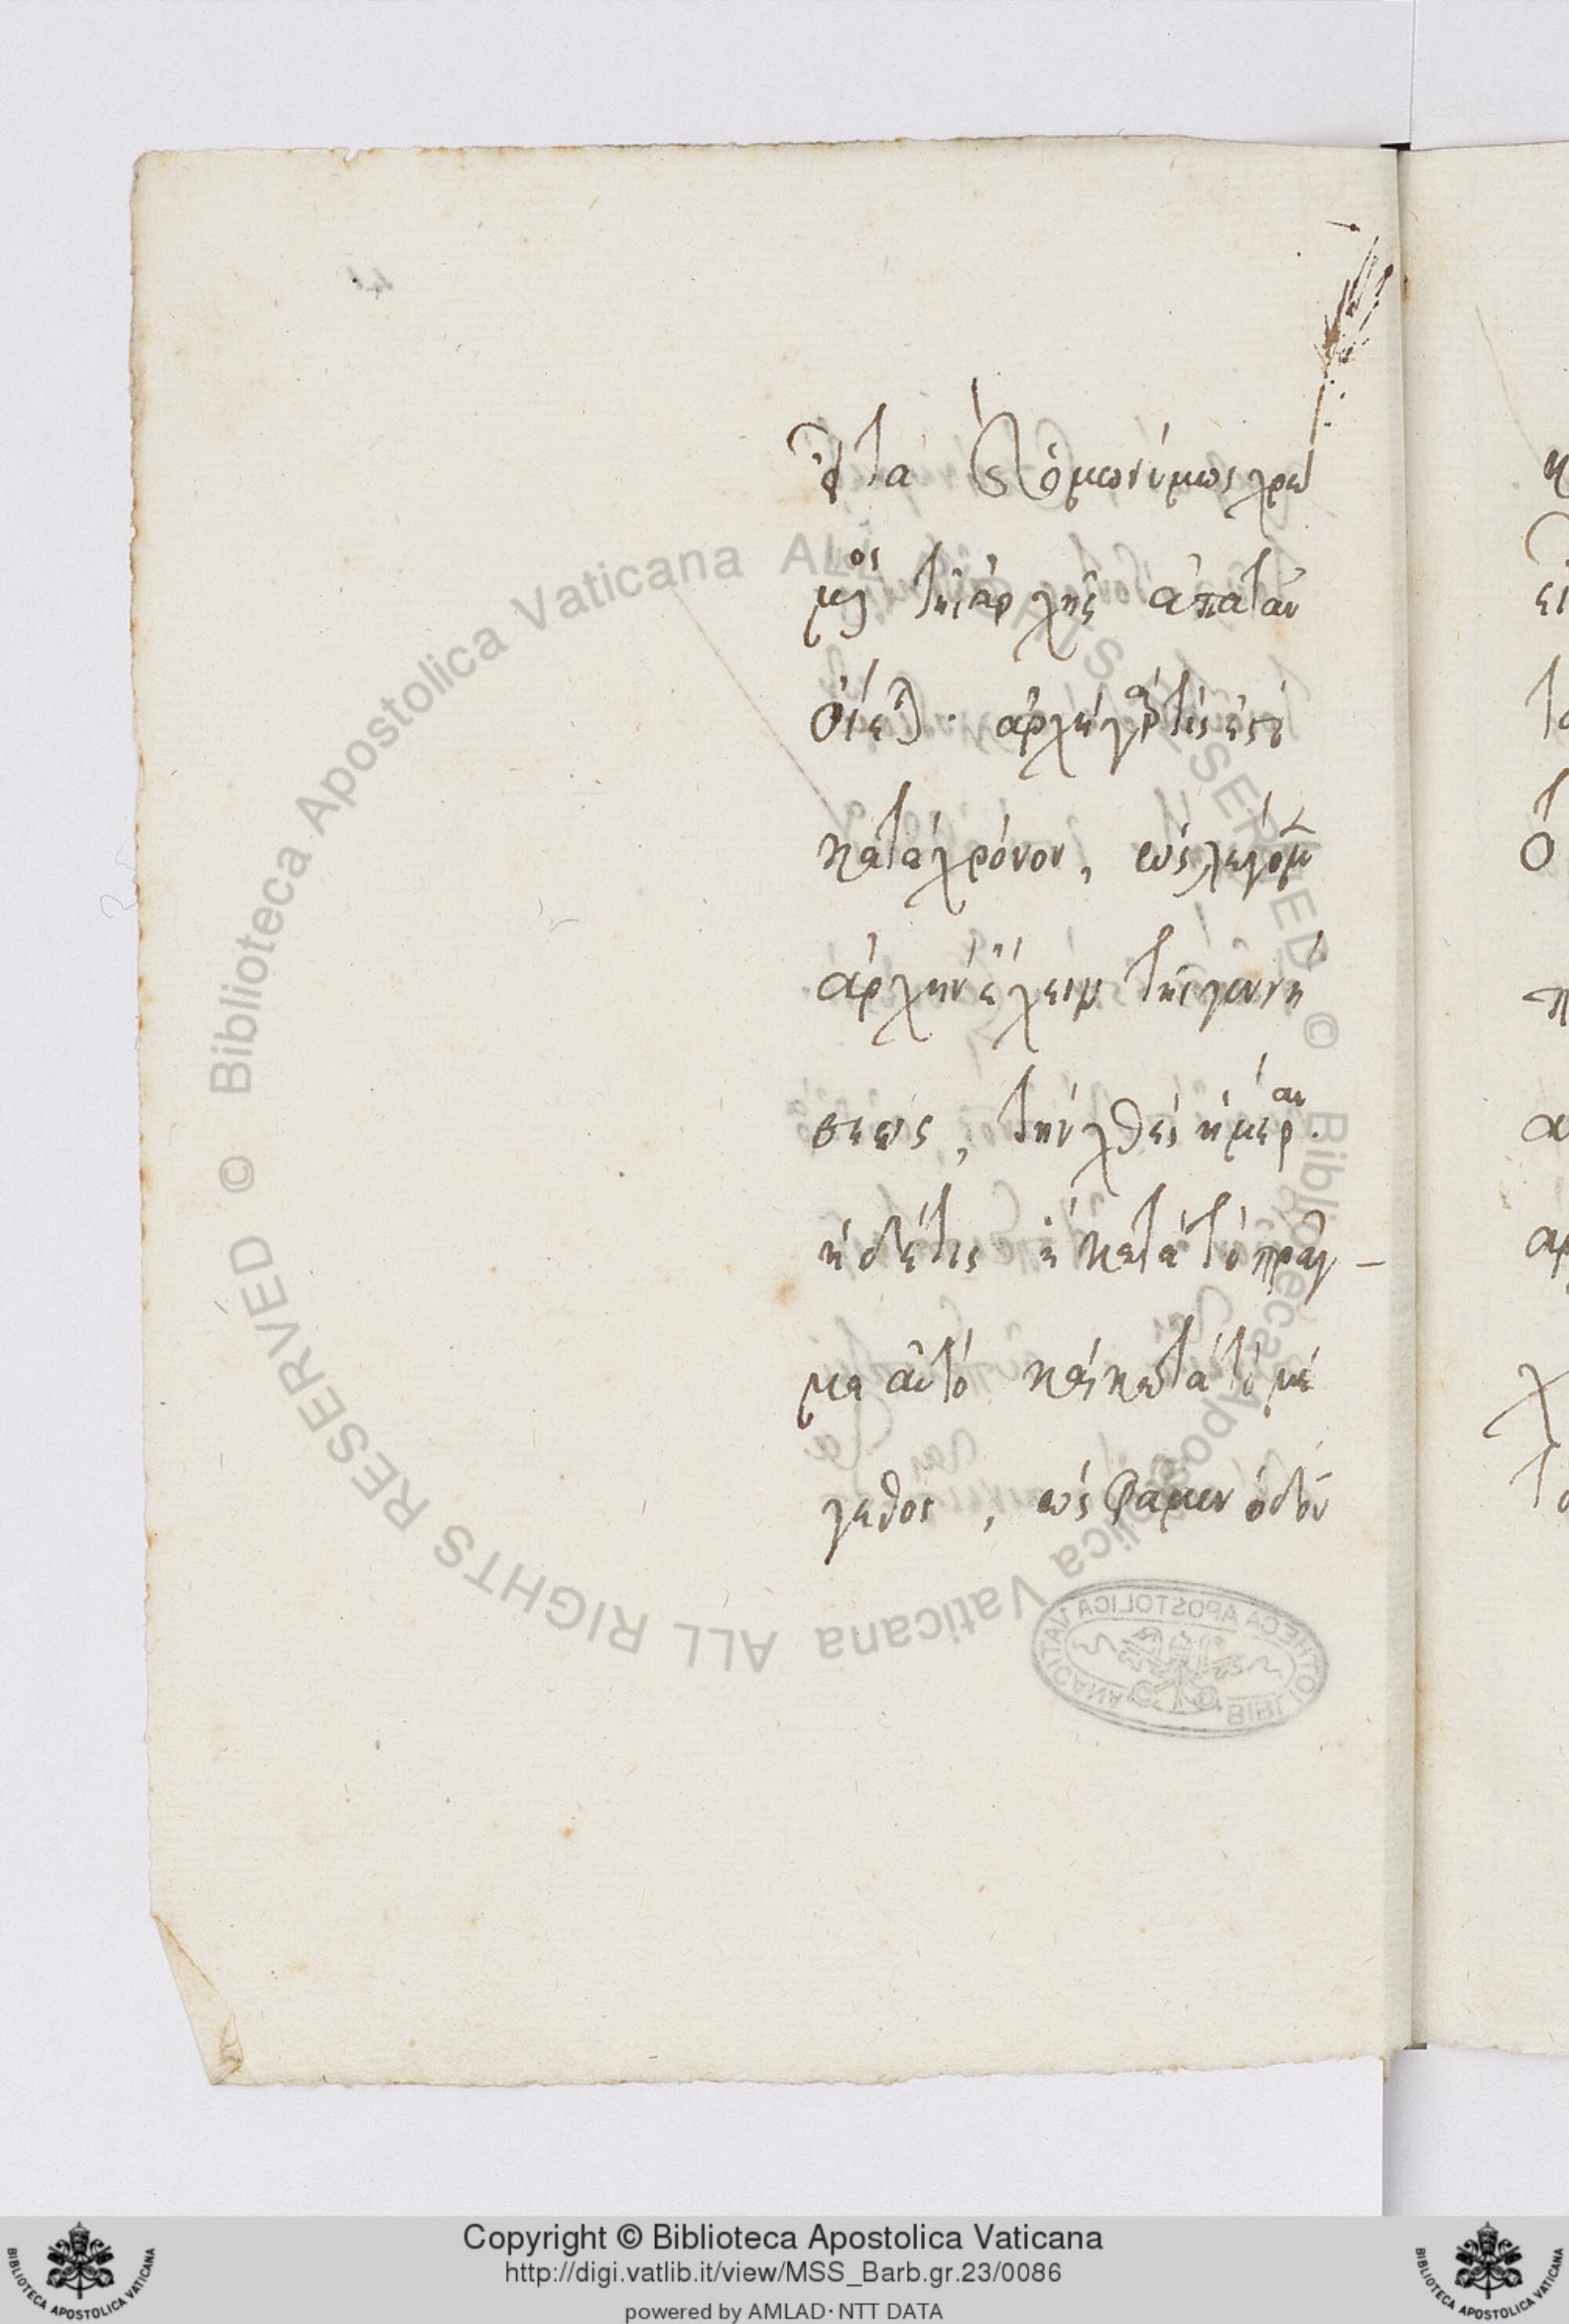 εἶτα καὶ ὁμωνύμως χρώ
μενος τῆς ἀρχῆς ἀπατᾶν
οἴεται· ἀρχὴ γάρ τίς ἐστι
κατὰ χρόνον, ὡς λέγομεν
ἀρχὴν ἔχειν τῆς γεννή
σεως, τὴν χθὲς ἡμέραν.
ἡ δέ τις ἡ κατὰ τὸ πρᾶγ-
μα αὐτὸ καὶ κατὰ τὸ μέ
γεθος, ὡς φαμὲν ὁδοῦ
© Biblioteca Apostolica Vaticana ALL RIGHTS RESERVED © Biblioteca Apostolica Vaticana ALL RIGHTS RESERVED
BIBLIOTHECA APOSTOLICA VATICANA
Copyright © Biblioteca Apostolica Vaticana
http://digi.vatlib.it/view/MSS_Barb.gr.23/0086
powered by AMLAD·NTT DATA
BIBLIOTECA APOSTOLICA VATICANA
BIBLIOTECA APOSTOLICA VATICANA